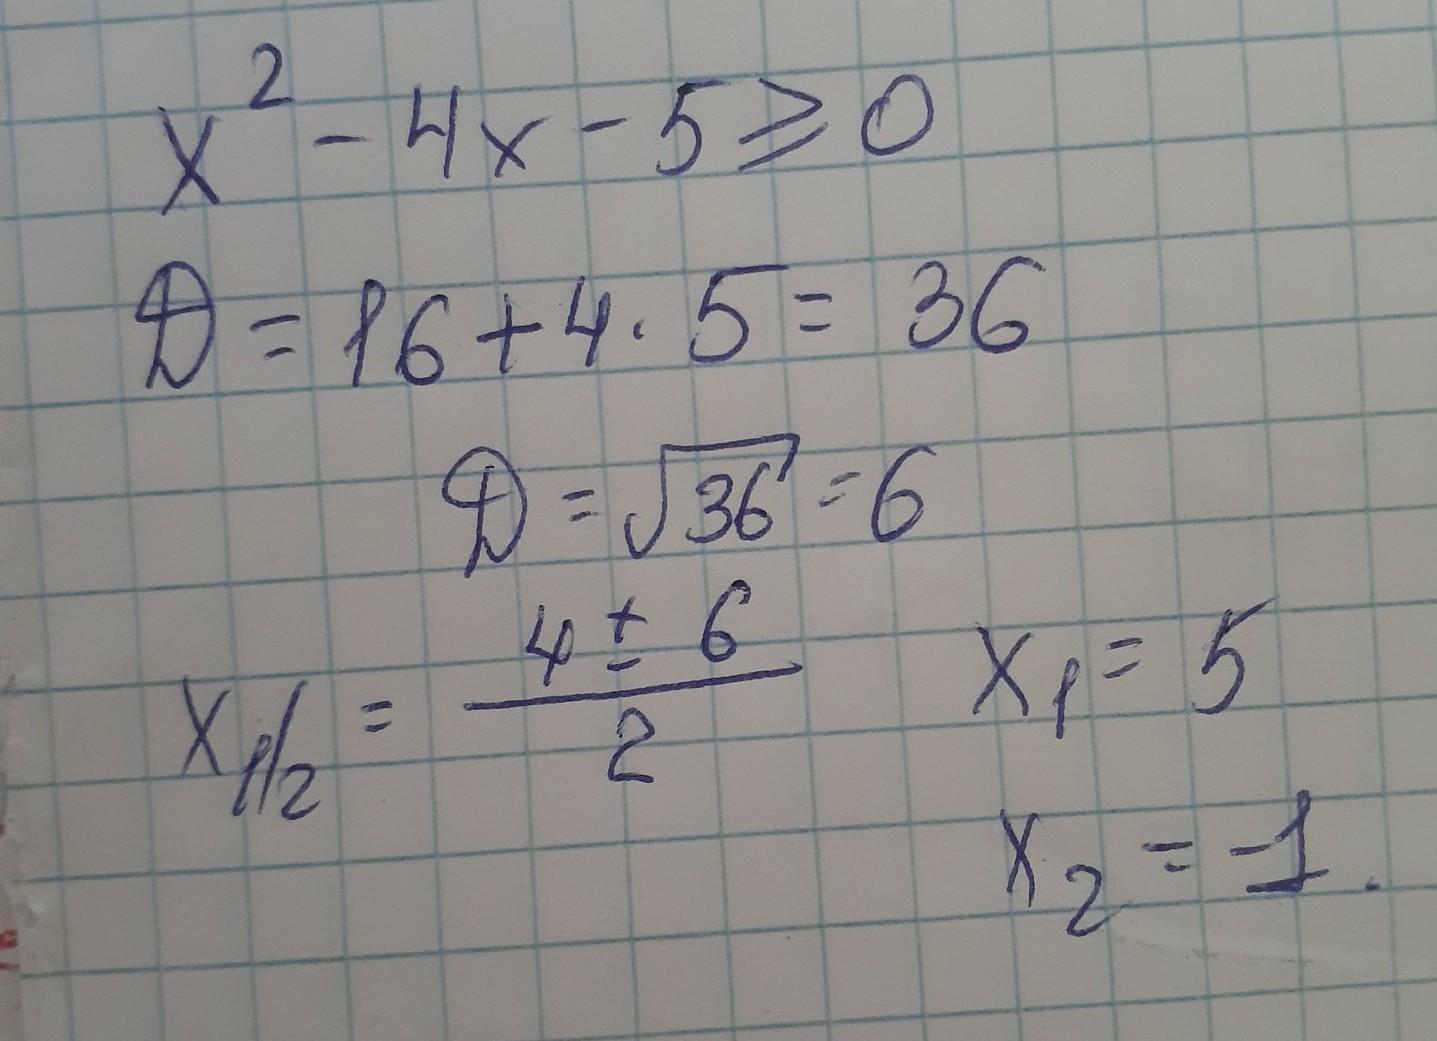 x² - 4x - 5 ≥ 0
D = 16 + 4 · 5 = 36
D = √36 = 6
x₁/₂ = (4 ± 6)/2    x₁ = 5
x₂ = -1.